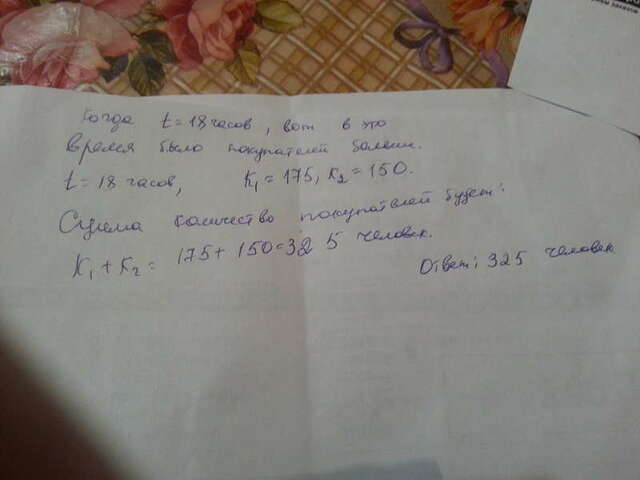 Когда t=18 часов, вот в это
время было покупателей больше.
t=18 часов, K₁=175, K₂=150.
Сумма количество покупателей будет:
K₁+K₂= 175+150=325 человек.
Ответ: 325 человек